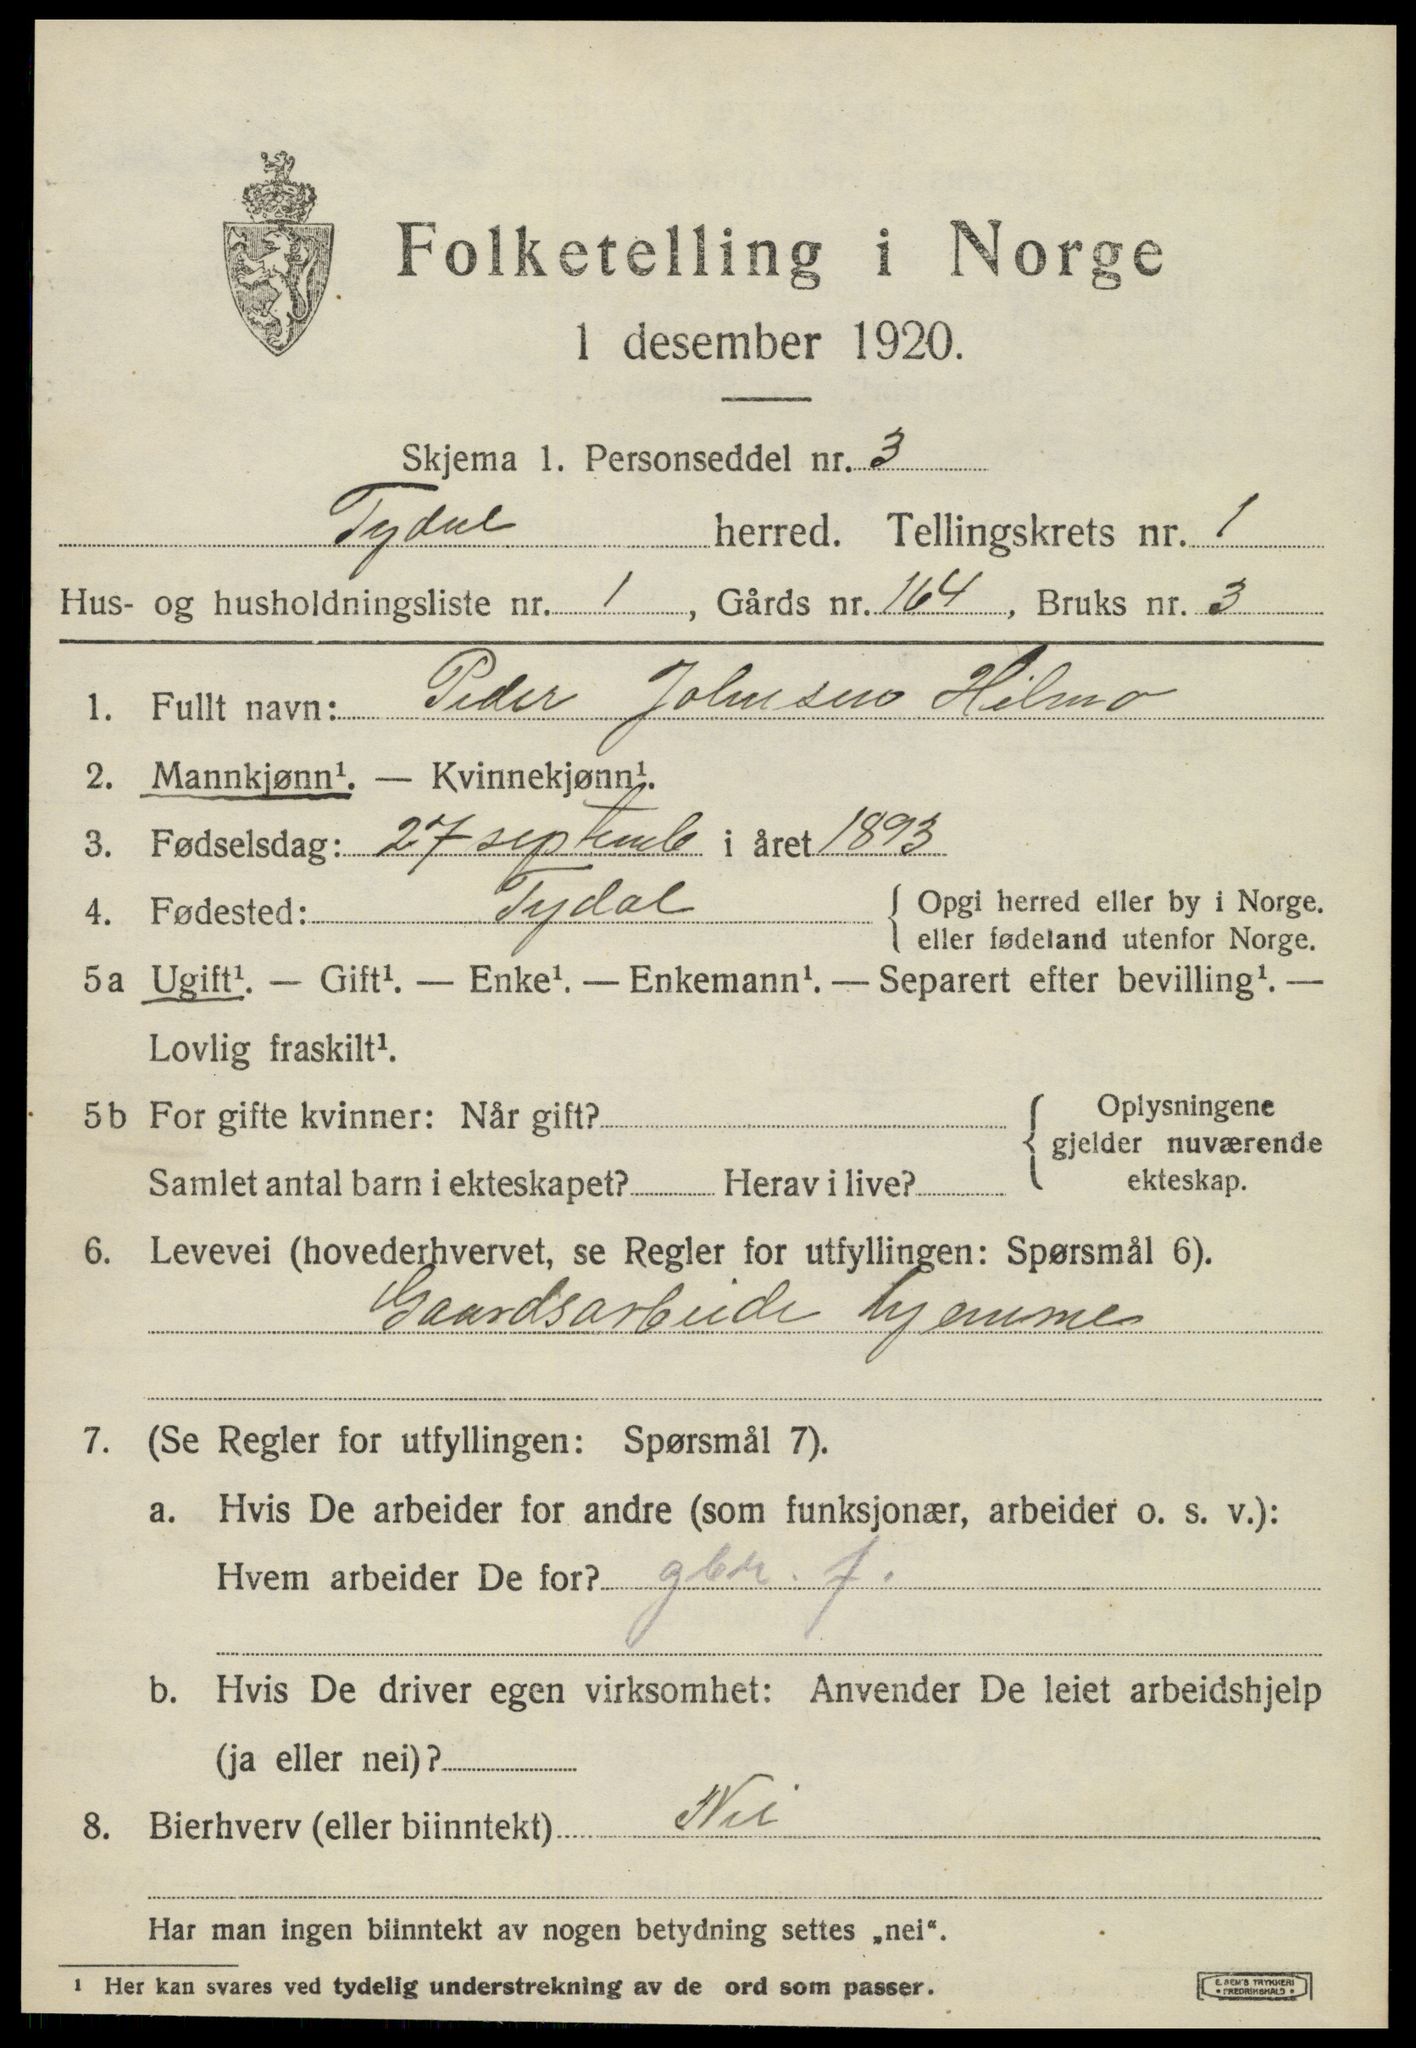 Folketelling i Norge
1 desember 1920.
Skjema 1. Personseddel nr. 3
Tydal herred. Tellingskrets nr. 1
Hus- og husholdningsliste nr. 1, Gårds nr. 164, Bruks nr. 3
1. Fullt navn: Peder Johnsen Hilmo
2. Mannkjønn¹. — Kvinnekjønn¹.
3. Fødselsdag: 27 septemb i året 1893
4. Fødested: Tydal { Opgi herred eller by i Norge.
eller fødeland utenfor Norge.
5a Ugift¹. — Gift¹. — Enke¹. — Enkemann¹. — Separert efter bevilling¹. —
Lovlig fraskilt¹.
5b For gifte kvinner: Når gift? { Oplysningene
gjelder nuværende
Samlet antal barn i ekteskapet? Herav i live? ekteskap.
6. Levevei (hovederhvervet, se Regler for utfyllingen: Spørsmål 6).
Gaardsarbeide hjemme
7. (Se Regler for utfyllingen: Spørsmål 7).
a. Hvis De arbeider for andre (som funksjonær, arbeider o. s. v.):
Hvem arbeider De for? gbr. f.
b. Hvis De driver egen virksomhet: Anvender De leiet arbeidshjelp
(ja eller nei)?
8. Bierhverv (eller biinntekt) Nei
Har man ingen biinntekt av nogen betydning settes „nei“.
¹ Her kan svares ved tydelig understrekning av de ord som passer.
E. SEM'S TRYKKERI
• FREDRIKSHALD •